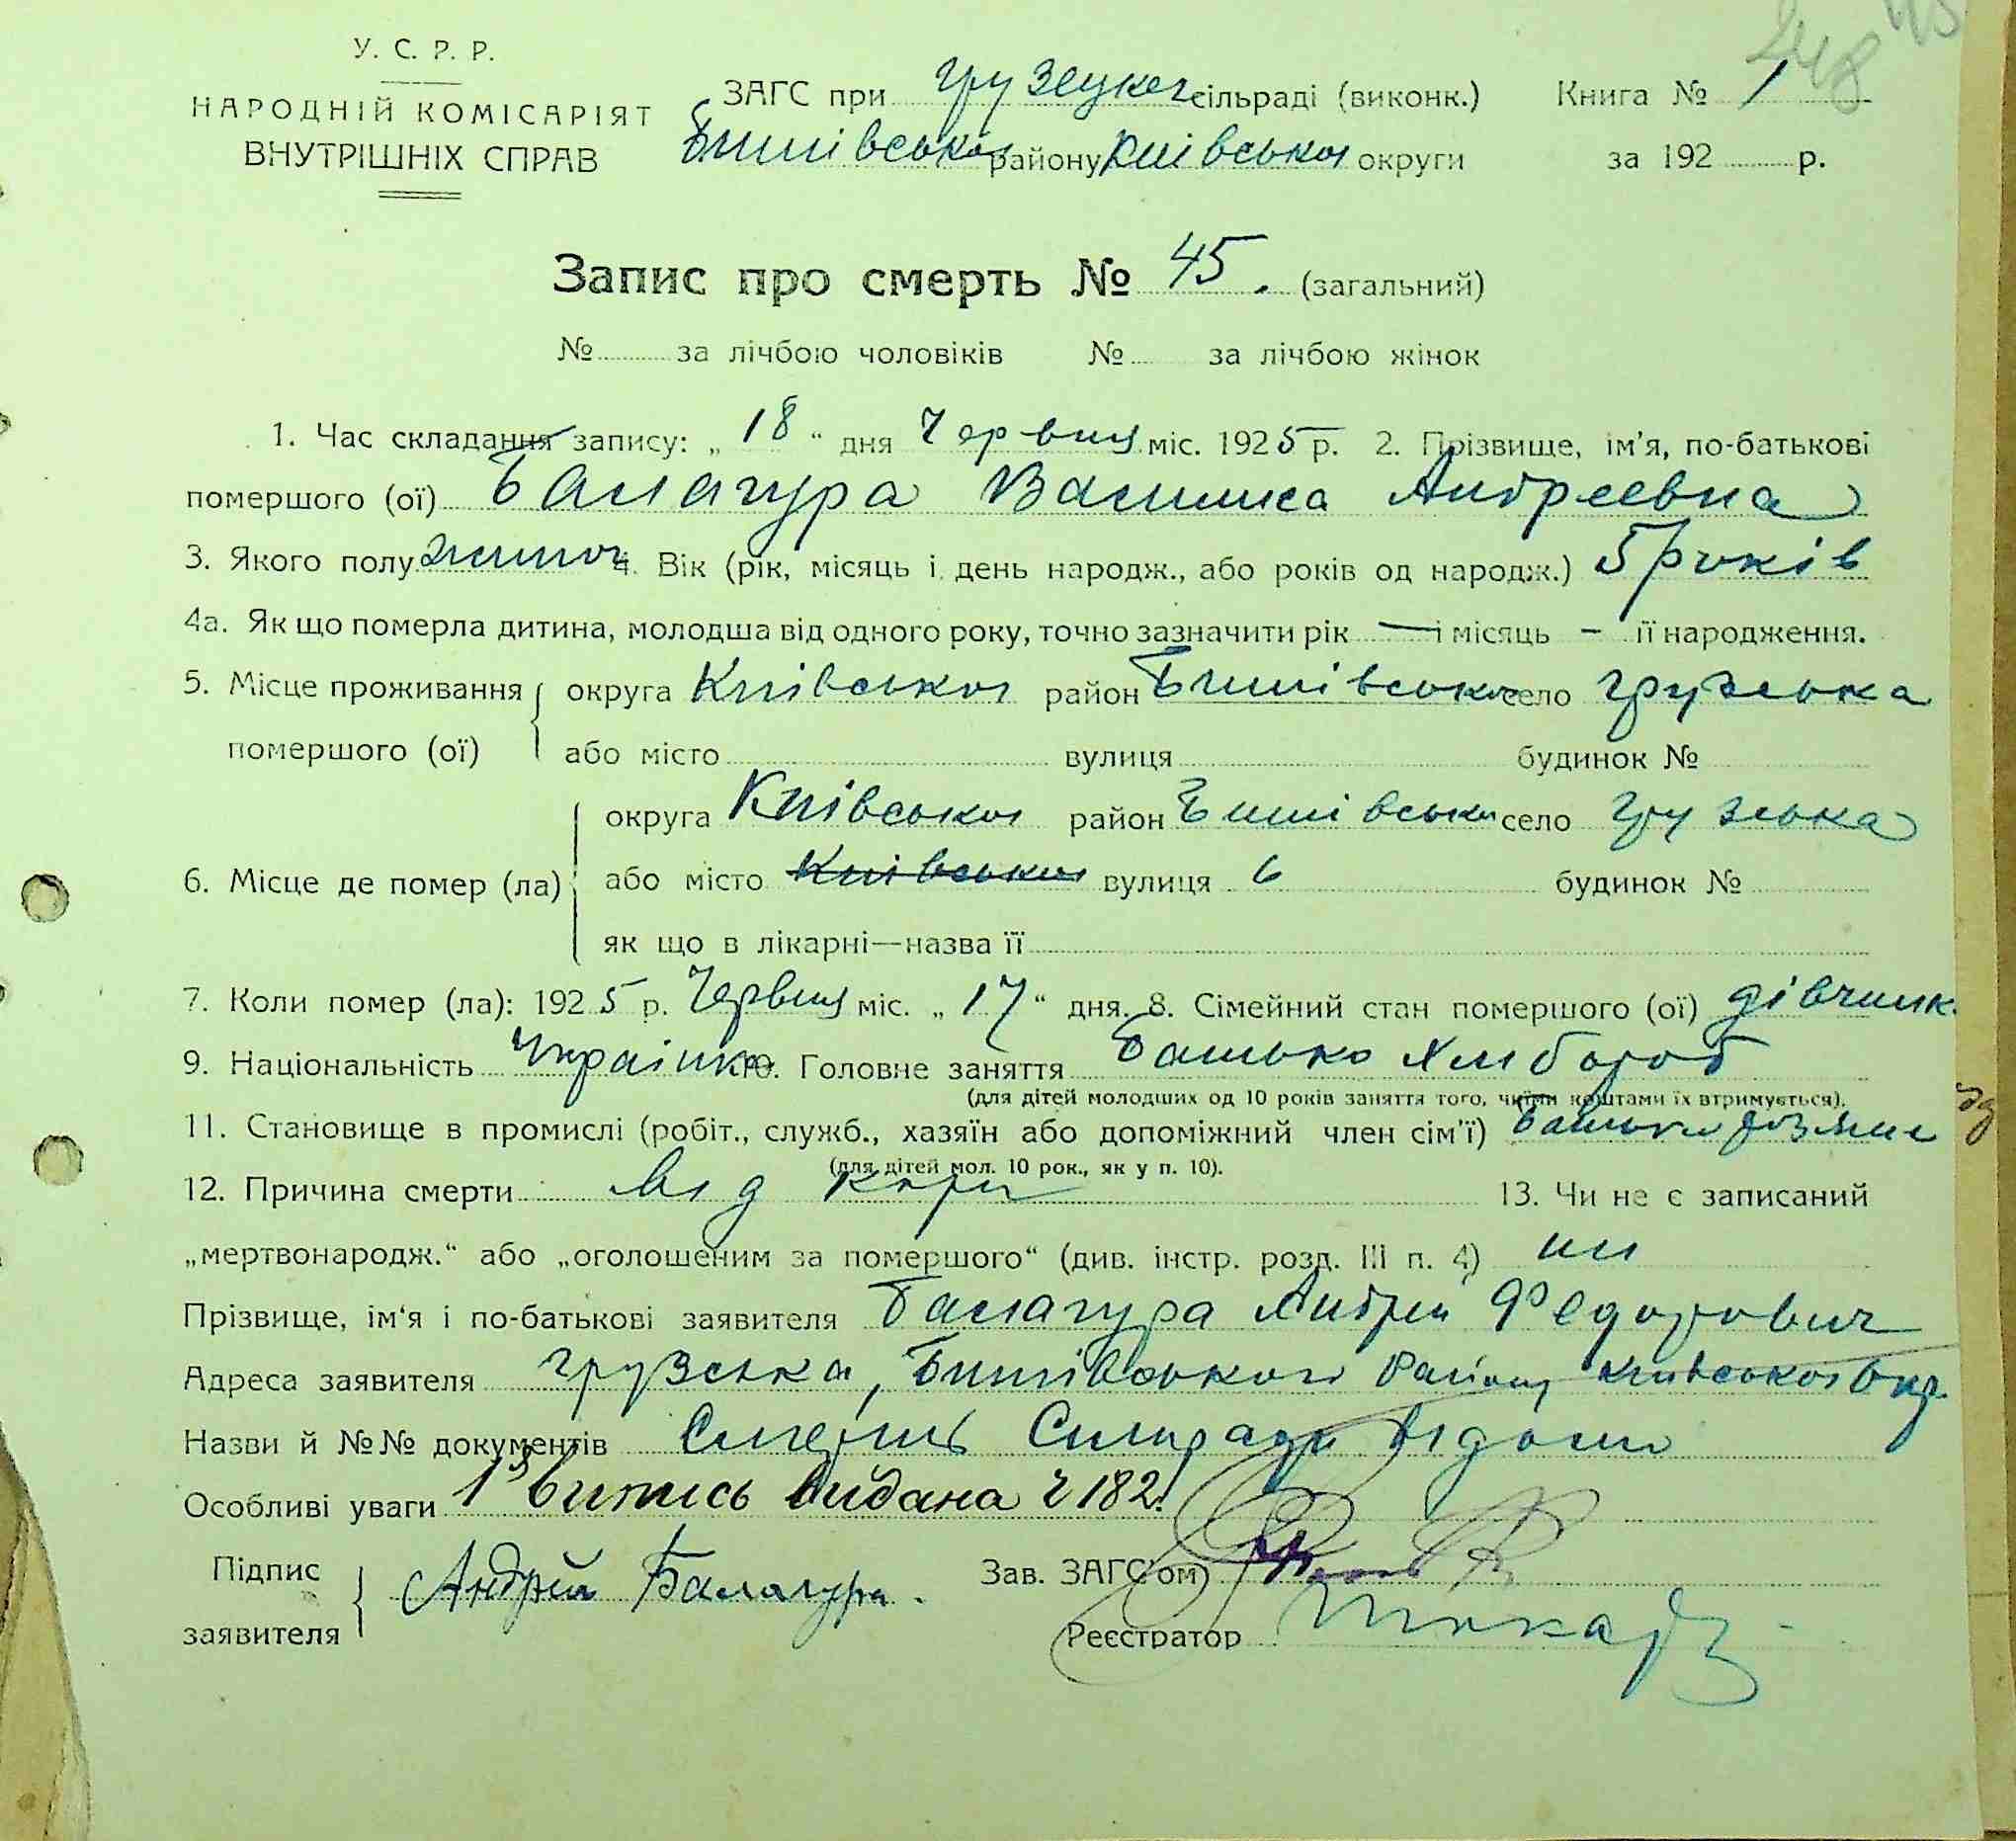 248
У. С. Р. Р.
НАРОДНІЙ КОМІСАРІЯТ
ВНУТРІШНІХ СПРАВ
ЗАГС при Грузецкої сільраді (виконк.) Книга № 1
Бишівського району Київської округи за 192 р.
Запис про смерть № 45. (загальний)
№ за лічбою чоловіків № за лічбою жінок
1. Час складання запису: „18“ дня Червня міс. 1925 р. 2. Прізвище, ім'я, по-батькові
помершого (ої) Балагура Василиса Андреевна
3. Якого полу жиноч 4. Вік (рік, місяць і день народж., або років од народж.) 5 років
4а. Як що померла дитина, молодша від одного року, точно зазначити рік — і місяць - її народження.
5. Місце проживання округа Київської район Бишівсько село Грузська
помершого (ої) або місто вулиця будинок №
округа Київської район Бишівськи село Грузська
6. Місце де помер (ла) або місто Київської вулиця будинок №
як що в лікарні—назва її
7. Коли помер (ла): 1925 р. Червня міс. „17“ дня. 8. Сімейний стан помершого (ої) дівчинк.
9. Національність Українка 10. Головне заняття Батько Хлибороб
(для дітей молодших од 10 років заняття того, чиїми коштами їх втримується).
11. Становище в промислі (робіт., служб., хазяїн або допоміжний член сім'ї) Батько
(для дітей мол. 10 рок., як у п. 10).
12. Причина смерти від кори 13. Чи не є записаний
„мертвонародж.“ або „оголошеним за помершого“ (див. інстр. розд. III п. 4) ни
Прізвище, ім'я і по-батькові заявителя Балагура Андрей Федорович
Адреса заявителя Грузська, Бишівського Району Київської Окр.
Назви й №№ документів Смерть Сильради відомо
Особливі уваги 1 Витись видана ч 182.
Підпис Андрій Балагура. Зав. ЗАГС'ом
заявителя Реєстратор